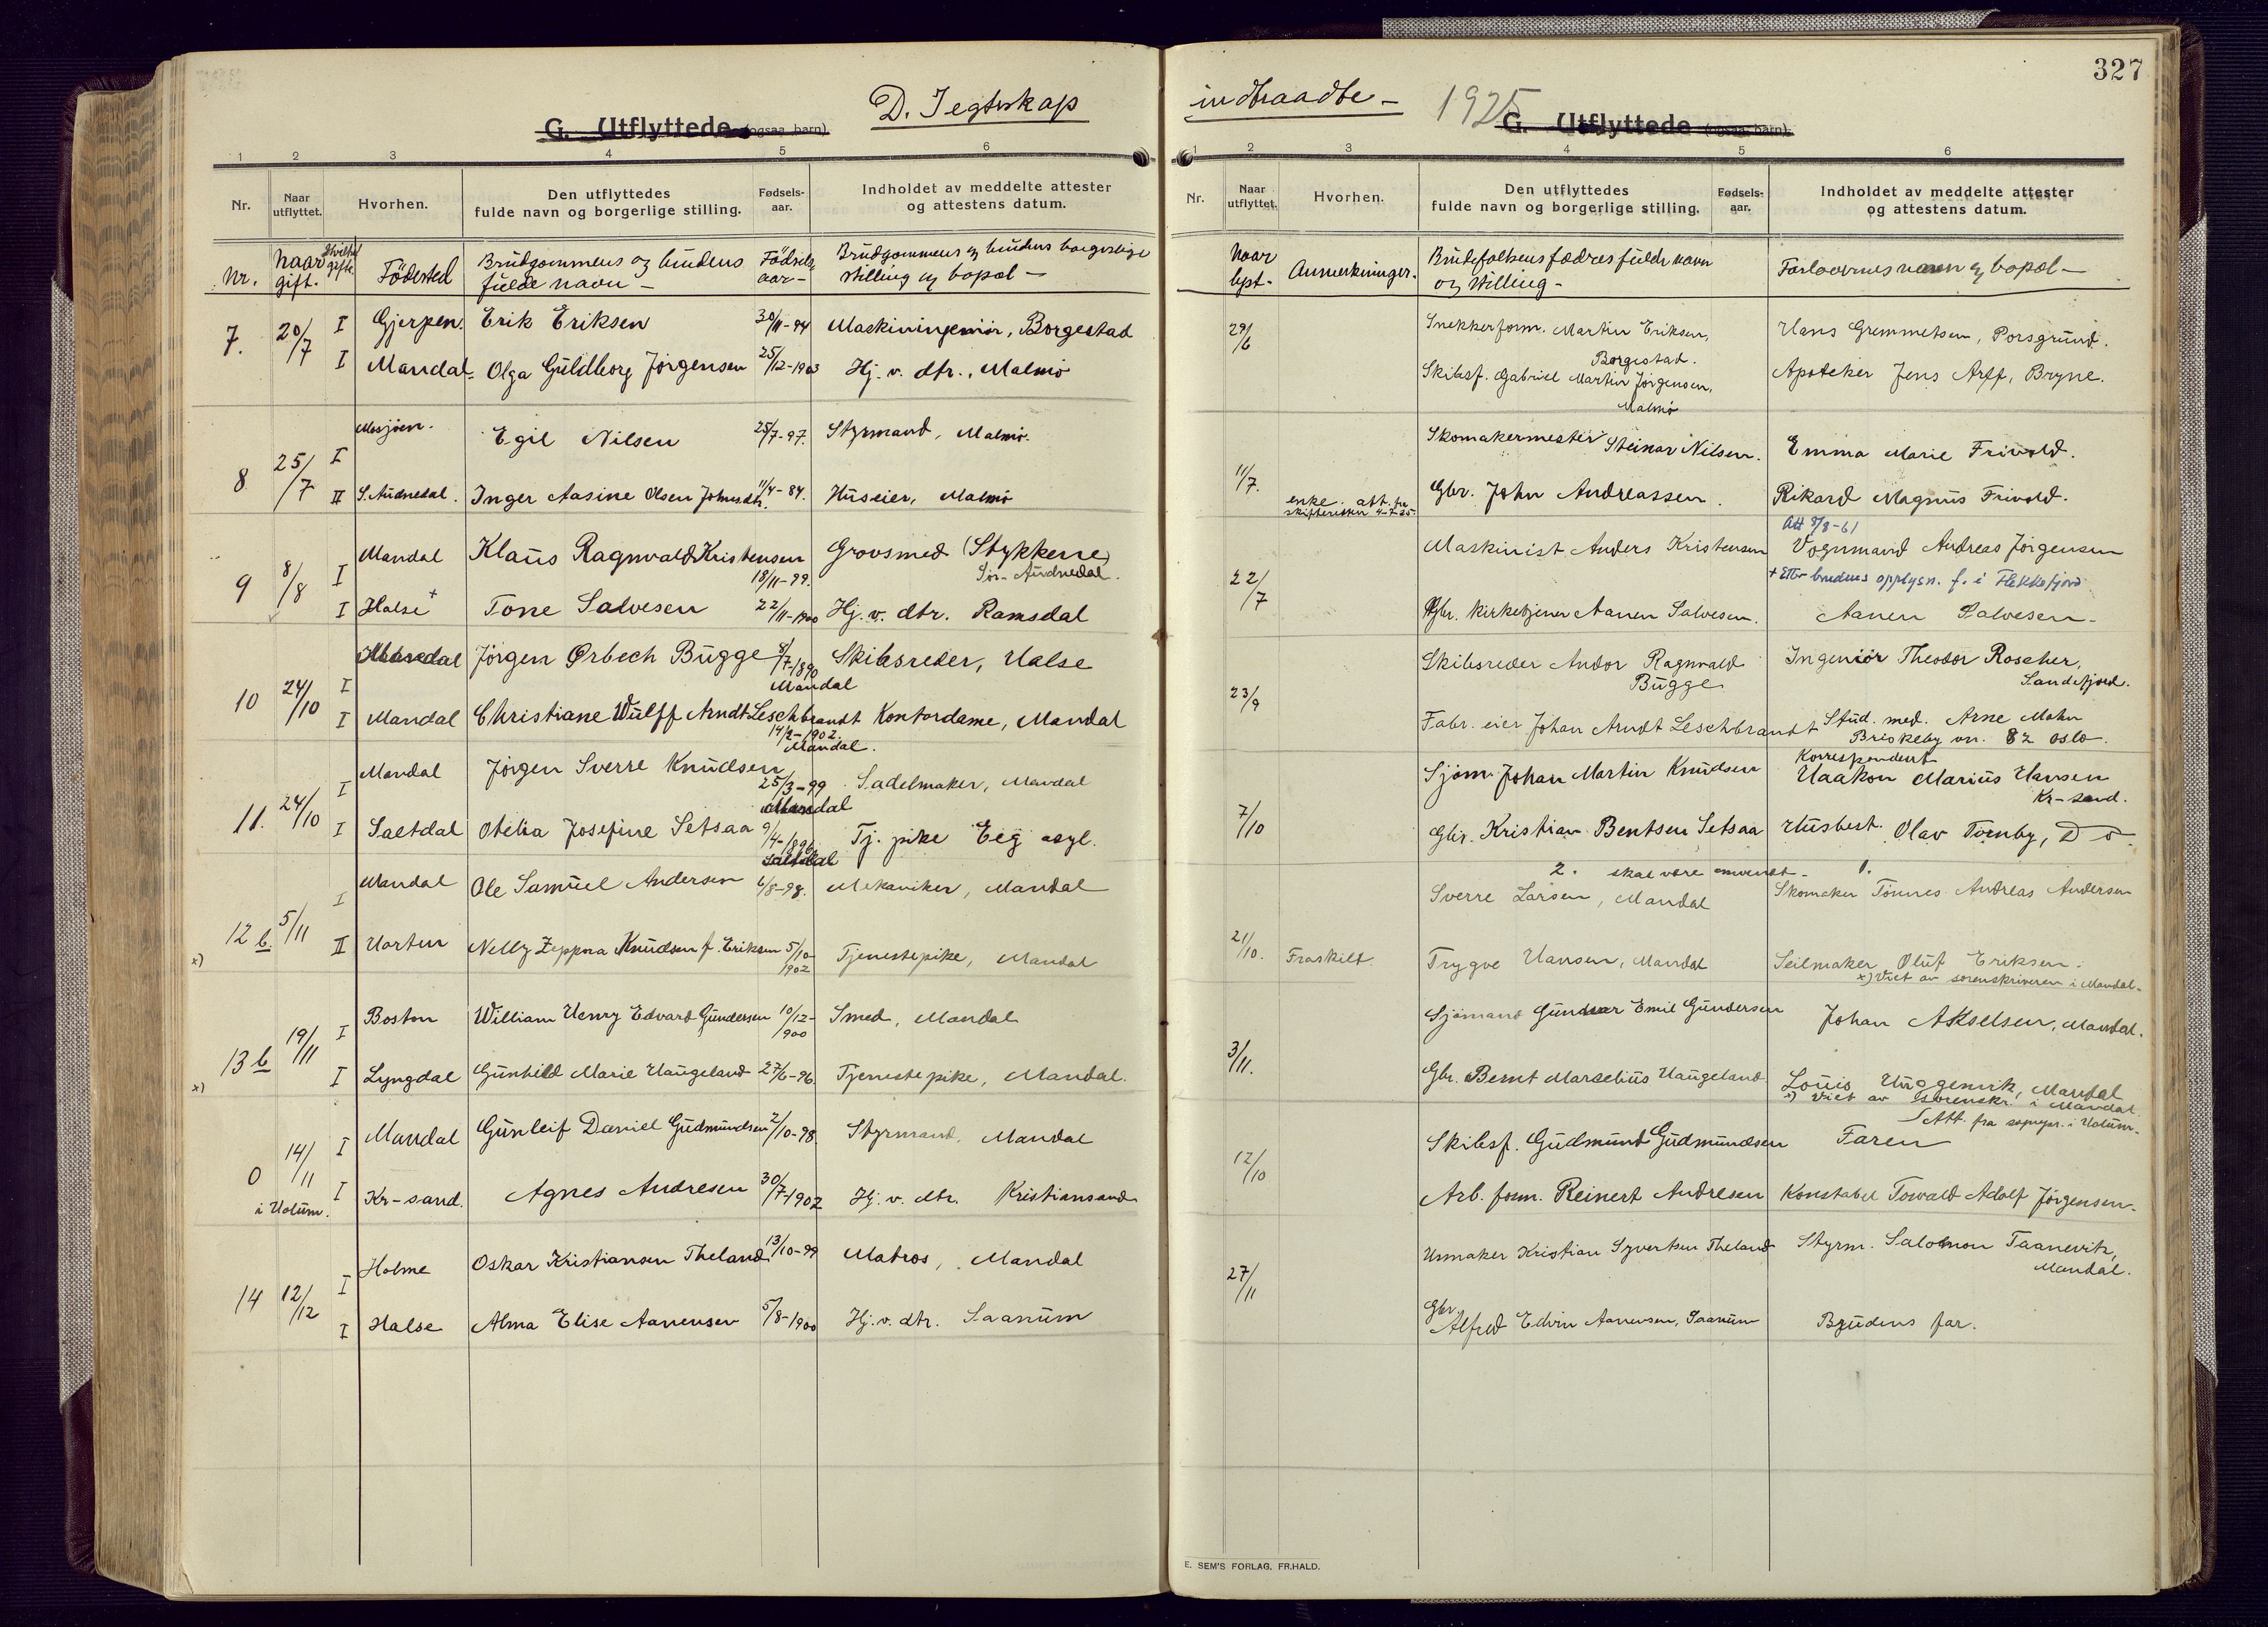 327
D. I egteskap indtraadte - 1925
G. Utflyttede (ogsaa barn)
1 2 3 4 5 6
Nr. Naar utflyttet. Hvorhen. Den utflyttedes fulde navn og borgerlige stilling. Fødsels-aar. Indholdet av meddelte attester og attestens datum.
Nr. Naar gift. Födested Brudgommens og brudens fulde navn - Födsels aar - Brudgommens og brudens borgerlige stilling og bopæl -
7. 20/7 I Gjerpen. Erik Eriksen 30/11-94 Maskiningeniör, Borgestad
I Mandal. Olga Guldborg Jörgensen 25/12-1903 Hj. v. dtr., Malmö
Mosjöen. Egil Nilsen 25/7-97. Styrmand, Malmö.
8 25/7 I
II S. Audnedal. Inger Aasine Olsen Johnsdtr. 11/4-84. Huseier, Malmö
Mandal Klaus Ragnvald Kristensen Grovsmed (Stykkene)
18/11-99. Sör-Audnedal.
9 8/8 I
I Halse + Tone Salvesen 22/11-1900 Hj. v. dtr. Ramsdal
Mandal Jörgen Ørbech Bugge 8/7-1890 Skibsreder, Halse
Mandal
10 24/10 I
I Mandal Christiane Wulff Arndt Leschbrandt Kontordame, Mandal
14/2-1902.
Mandal.
Mandal Jörgen Sverre Knudsen
I 25/3-99 Sadelmaker, Mandal
Mandal
11. 24/10 I Saltdal Otelia Josefine Setsaa 9/4-1896 Tj. pike Eeg asyl.
Saltdal
I Mandal Ole Samuel Andersen 6/8-98. Mekaniker, Mandal
x) 12 b. 5/11 II Horten Nelly Zeppna Knudsen f. Eriksen 5/10-1902 Tjenestepike, Mandal
I Boston William Henry Edvard Gundersen 10/12-900 Smed, Mandal
x) 13 b 19/11 I Lyngdal Gunhild Marie Haugeland 27/6-96. Tjenestepike, Mandal.
I Mandal Gunleif Daniel Gudmundsen 2/10-98. Styrmand, Mandal
0 14/11
i Holum. I Kr-sand. Agnes Andresen 30/7-1902 Hj. v. dtr. Kristiansand
I Holme Oskar Kristiansen Theland 13/10-99 Matros, Mandal
14 12/12 I Halse Alma Elise Aanensen 5/8-1900 Hj. v. dtr. Saanum
G. Utflyttede (ogsaa barn)
1 2 3 4 5 6
Nr. Naar utflyttet. Hvorhen. Den utflyttedes fulde navn og borgerlige stilling. Fødsels-aar. Indholdet av meddelte attester og attestens datum.
Naar lyst- Anmerkninger. Brudefolkenes fædres fulde navn og stilling - Forlovernes navn og bopæl -
29/6 Snekkerform. Martin Eriksen, Hans Gremmetsen, Porsgrund.
Borgestad.
Skibsf. Gabriel Martin Jörgensen, Apoteker Jens Arff, Bryne.
Malmö
Skomakermester Steinar Nilsen. Emma Marie Frivold.
11/7. enke. att. fra skifteretten 4-7-25. Gbr. John Andreassen. Rikard Magnus Frivold.
Att 8/8-61
Maskinist Anders Kristensen Vognmand Andreas Jörgensen
22/7 + Efter brudens opplysn. f. i Flekkefjord
Gbr. Kirketjener Aanen Salvesen. Aanen Salvesen -
Skibsreder Andor Ragnvald Bugge Ingeniör Theodor Roscher, Sandefjord.
23/9
Fabr. eier Johan Arndt Leschbrandt Stud. med. Arne Mohn
Briskeby vn. 82 Oslo.
Korrespondent
Sjöm. Johan Martin Knudsen Haakon Marius Hansen
Kr-sand.
7/10 Gbr. Kristian Bentsen Setsaa Husbest. Olav Tornby, Do.
2. skal være omvendt - 1.
Sverre Larsen, Mandal Skomaker Tönnes Andreas Andersen
21/10. Fraskilt Trygve Hansen, Mandal Seilmaker Oluf Eriksen.
x) Viet av sorenskriveren i Mandal.
Sjömand Gunnar Emil Gundersen Johan Akselsen, Mandal.
3/11. Gbr. Bernt Marselius Haugeland Louis Uggenvik, Mandal
x) Viet av sorenskr. i Mandal.
Att. fra sognepr. i Holum.
Skibsf. Gudmund Gudmundsen Faren
12/10
Arb. form. Reinert Andresen Konstabel Torvald Adolf Jörgensen.
Urmaker Kristian Syvertsen Theland Styrm. Salomon Taanevik,
Mandal.
27/11
Gbr. Alfred Edvin Aanensen, Saanum Brudens far.
E. SEM'S FORLAG, FR.HALD.